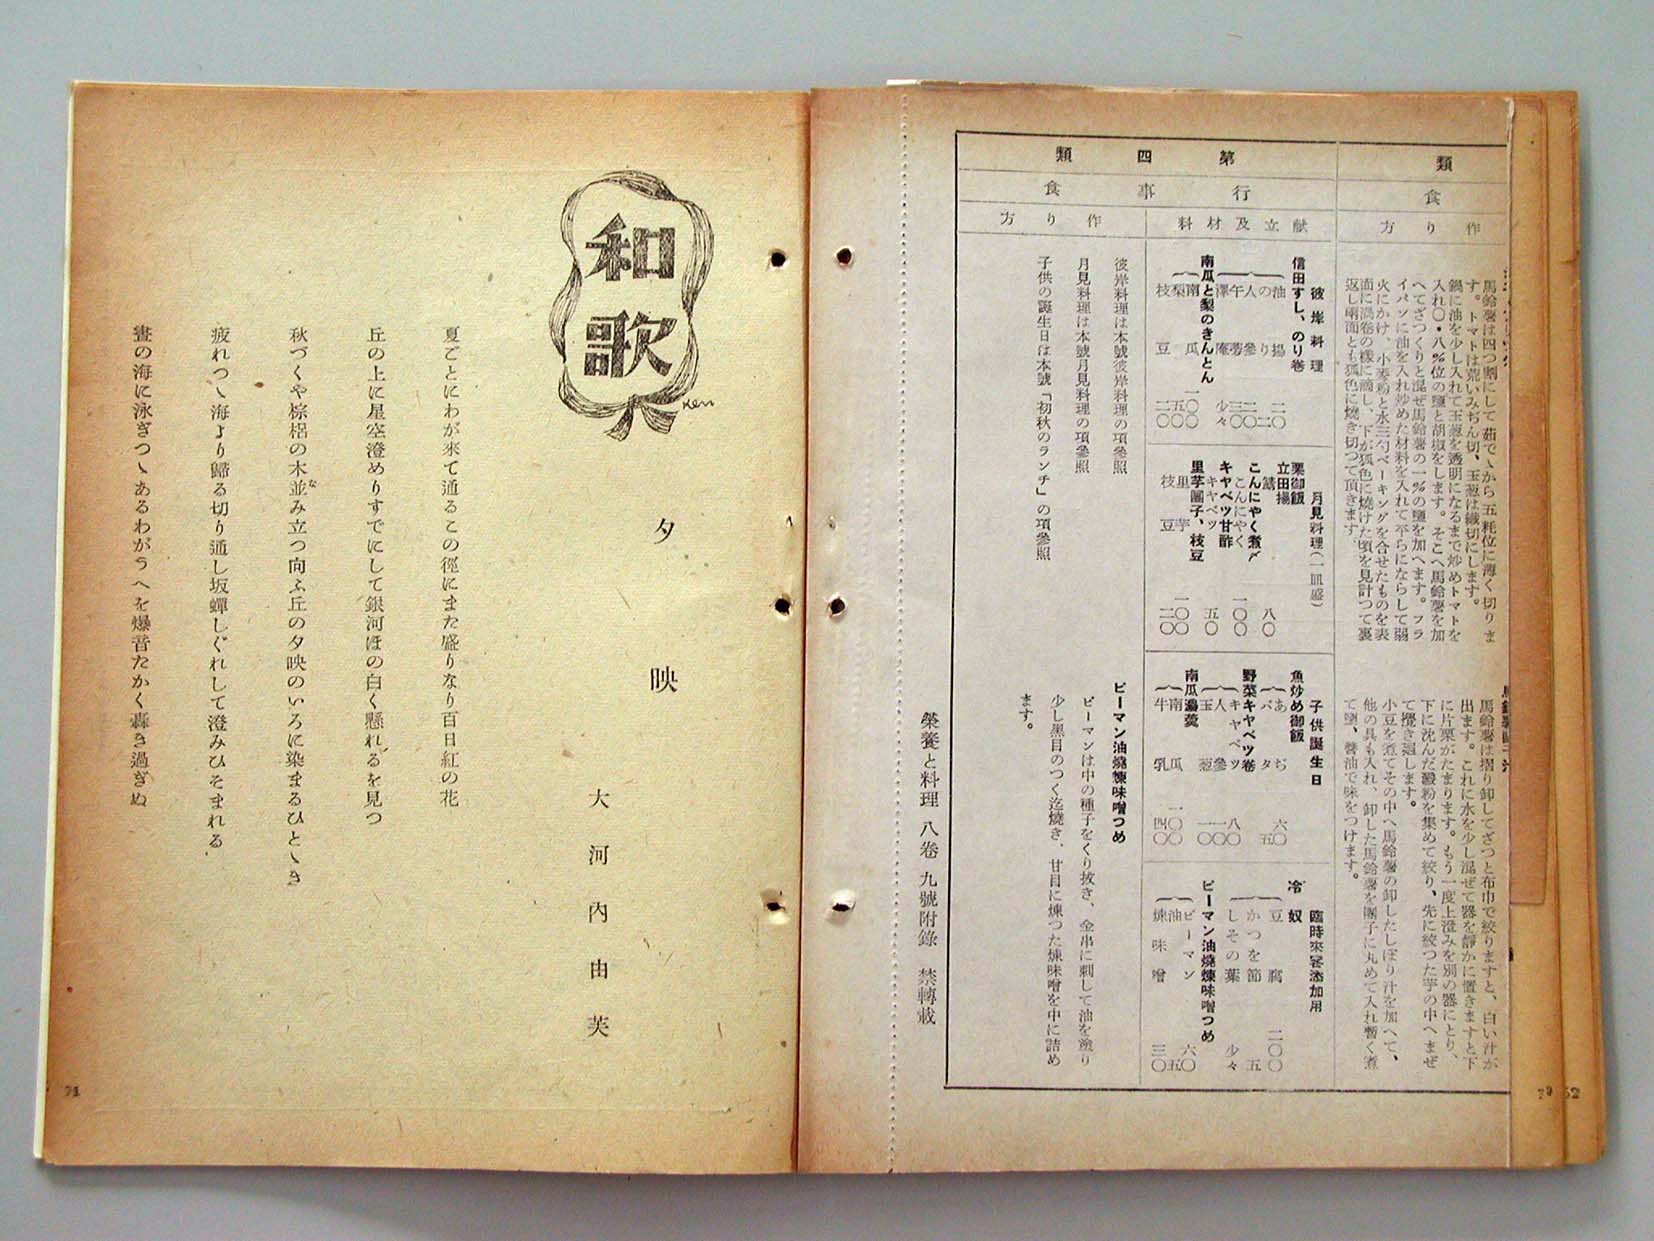 類
食
作り方
馬鈴薯は四つ割にして茹でゝから五粍位に薄く切りま
す。トマトは荒いみぢん切、玉葱は繊切にします。
鍋に油を少し入れて玉葱を透明になるまで炒めトマトを
入れ〇・八%位の鹽と胡椒をします。そこへ馬鈴薯を加
へてざつくりと混ぜ馬鈴薯の一%の鹽を加へます。フラ
イパンに油を入れ炒めた材料を入れて平らにならして弱
火にかけ、小麥粉と水三勺ベーキングを合せたものを表
面に渦卷の樣に滴し、下が狐色に燒けた頃を見計つて裏
返し兩面とも狐色に燒き切つて頂きます。
馬鈴薯は摺り卸してざつと布巾で絞りますと、白い汁が
出ます。これに水を少し混ぜて器を靜かに置きますと下
に片栗がたまります。もう一度上澄みを別の器にとり、
下に沈んだ澱粉を集めて絞り、先に絞つた芋の中へまぜ
て攪き廻します。
小豆を煮てその中へ馬鈴薯の卸したしぼり汁を加へて、
他の具も入れ、卸した馬鈴薯を團子に丸めて入れ暫く煮
て鹽、醤油で味をつけます。
第四類
行事食
献立及材料
彼岸料理
信田すし、のり卷
油揚 二〇
のり 二
人參 二〇
午蒡 三〇
澤庵 少々
南瓜と梨のきんとん
南瓜 一〇〇
梨 五〇
枝豆 二〇
月見料理(一皿盛)
栗御飯
立田揚
鯖 八〇
こんにやく煮〆
こんにやく 一〇〇
キャベツ甘酢
キャベツ 五〇
里芋團子、枝豆
里芋 一〇〇
枝豆 二〇
子供誕生日
魚炒め御飯
あぢ 六〇
バタ 五
野菜キャベツ卷
キャベツ 八〇
人參 一〇
玉葱 一〇
南瓜濃羹
南瓜 一〇〇
牛乳 四〇
臨時來客添加用
冷奴
豆腐 二〇〇
かつを節 五
しその葉 少々
ピーマン油燒煉味噌つめ
ピーマン 六〇
油 五
煉味噌 三〇
作り方
彼岸料理は本號彼岸料理の項參照
月見料理は本號月見料理の項參照
子供の誕生日は本號「初秋のランチ」の項參照
ピーマン油燒煉味噌つめ
ピーマンは中の種子をくり拔き、金串に刺して油を塗り
少し黑目のつく迄燒き、甘目に煉つた煉味噌を中に詰め
ます。
榮養と料理 八卷 九號附錄 禁轉載
79
52
和歌
Ken
夕映
大河内由芙
夏ごとにわが來て通るこの徑にまた盛りなり百日紅の花
丘の上に星空澄めりすでにして銀河ほの白く懸れるを見つ
秋づくや棕梠の木並み立つ向ふ丘の夕映のいろに染まるひとゝき
な
疲れつゝ海より歸る切り通し坂蟬しぐれして澄みひそまれる
晝の海に泳ぎつゝあるわがうへを爆音たかく轟き過ぎぬ
71